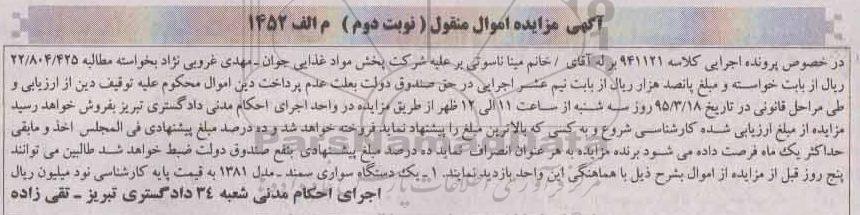 آگهی مزایده اموال منقول ( نوبت دوم ) م الف ۱۴۵۲
در خصوص پرونده اجرایی کلاسه ۹۴۱۱۲۱ بر له آقای / خانم مینا ناسوتی پر علیه شرکت پخش مواد غذایی جوان ـ مهدی غروبی نژاد بخواسته مطالبه ۲۲/۸۰۴/۴۲۵
ریال از بابت خواسته و مبلغ پانصد هزار ریال از بابت نیم عشر اجرایی در حق صندوق دولت بعلت عدم پرداخت دین اموال محکوم علیه توقیف دین از ارزیابی و
طی مراحل قانونی در تاریخ ۹۵/۳/۱۸ روز سه شنبه از ساعت ۱۱ الی ۱۲ ظهر از طریق مزایده در واحد اجرای احکام مدنی دادگستری تبریز بفروش خواهد رسید
مزایده از مبلغ ارزیابی شده کارشناسی شروع و به کسی که بالاترین مبلغ را پیشنهاد نماید فروخته خواهد شد و ده درصد مبلغ پیشنهادی فی المجلس اخذ و مابقی
حداکثر یک ماه فرصت داده می شود برنده مزایده به هر عنوان انصراف نماید ده درصد مبلغ پیشنهادی بنفع صندوق دولت ضبط خواهد شد طالبین می توانند
پنج روز قبل از مزایده از اموال بشرح ذیل با هماهنگی این واحد بازدید نمایند. ۱ ـ یک دستگاه سواری سمند ـ مدل ۱۳۸۱ به قیمت پایه کارشناسی نود میلیون ریال
اجرای احکام مدنی شعبه ۳۴ دادگستری تبریز ـ تقی زاده